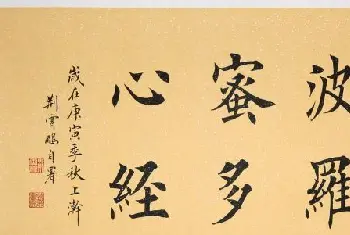 波羅
蜜多
心経
歲在庚寅季秋上澣
荆霄鹏自署